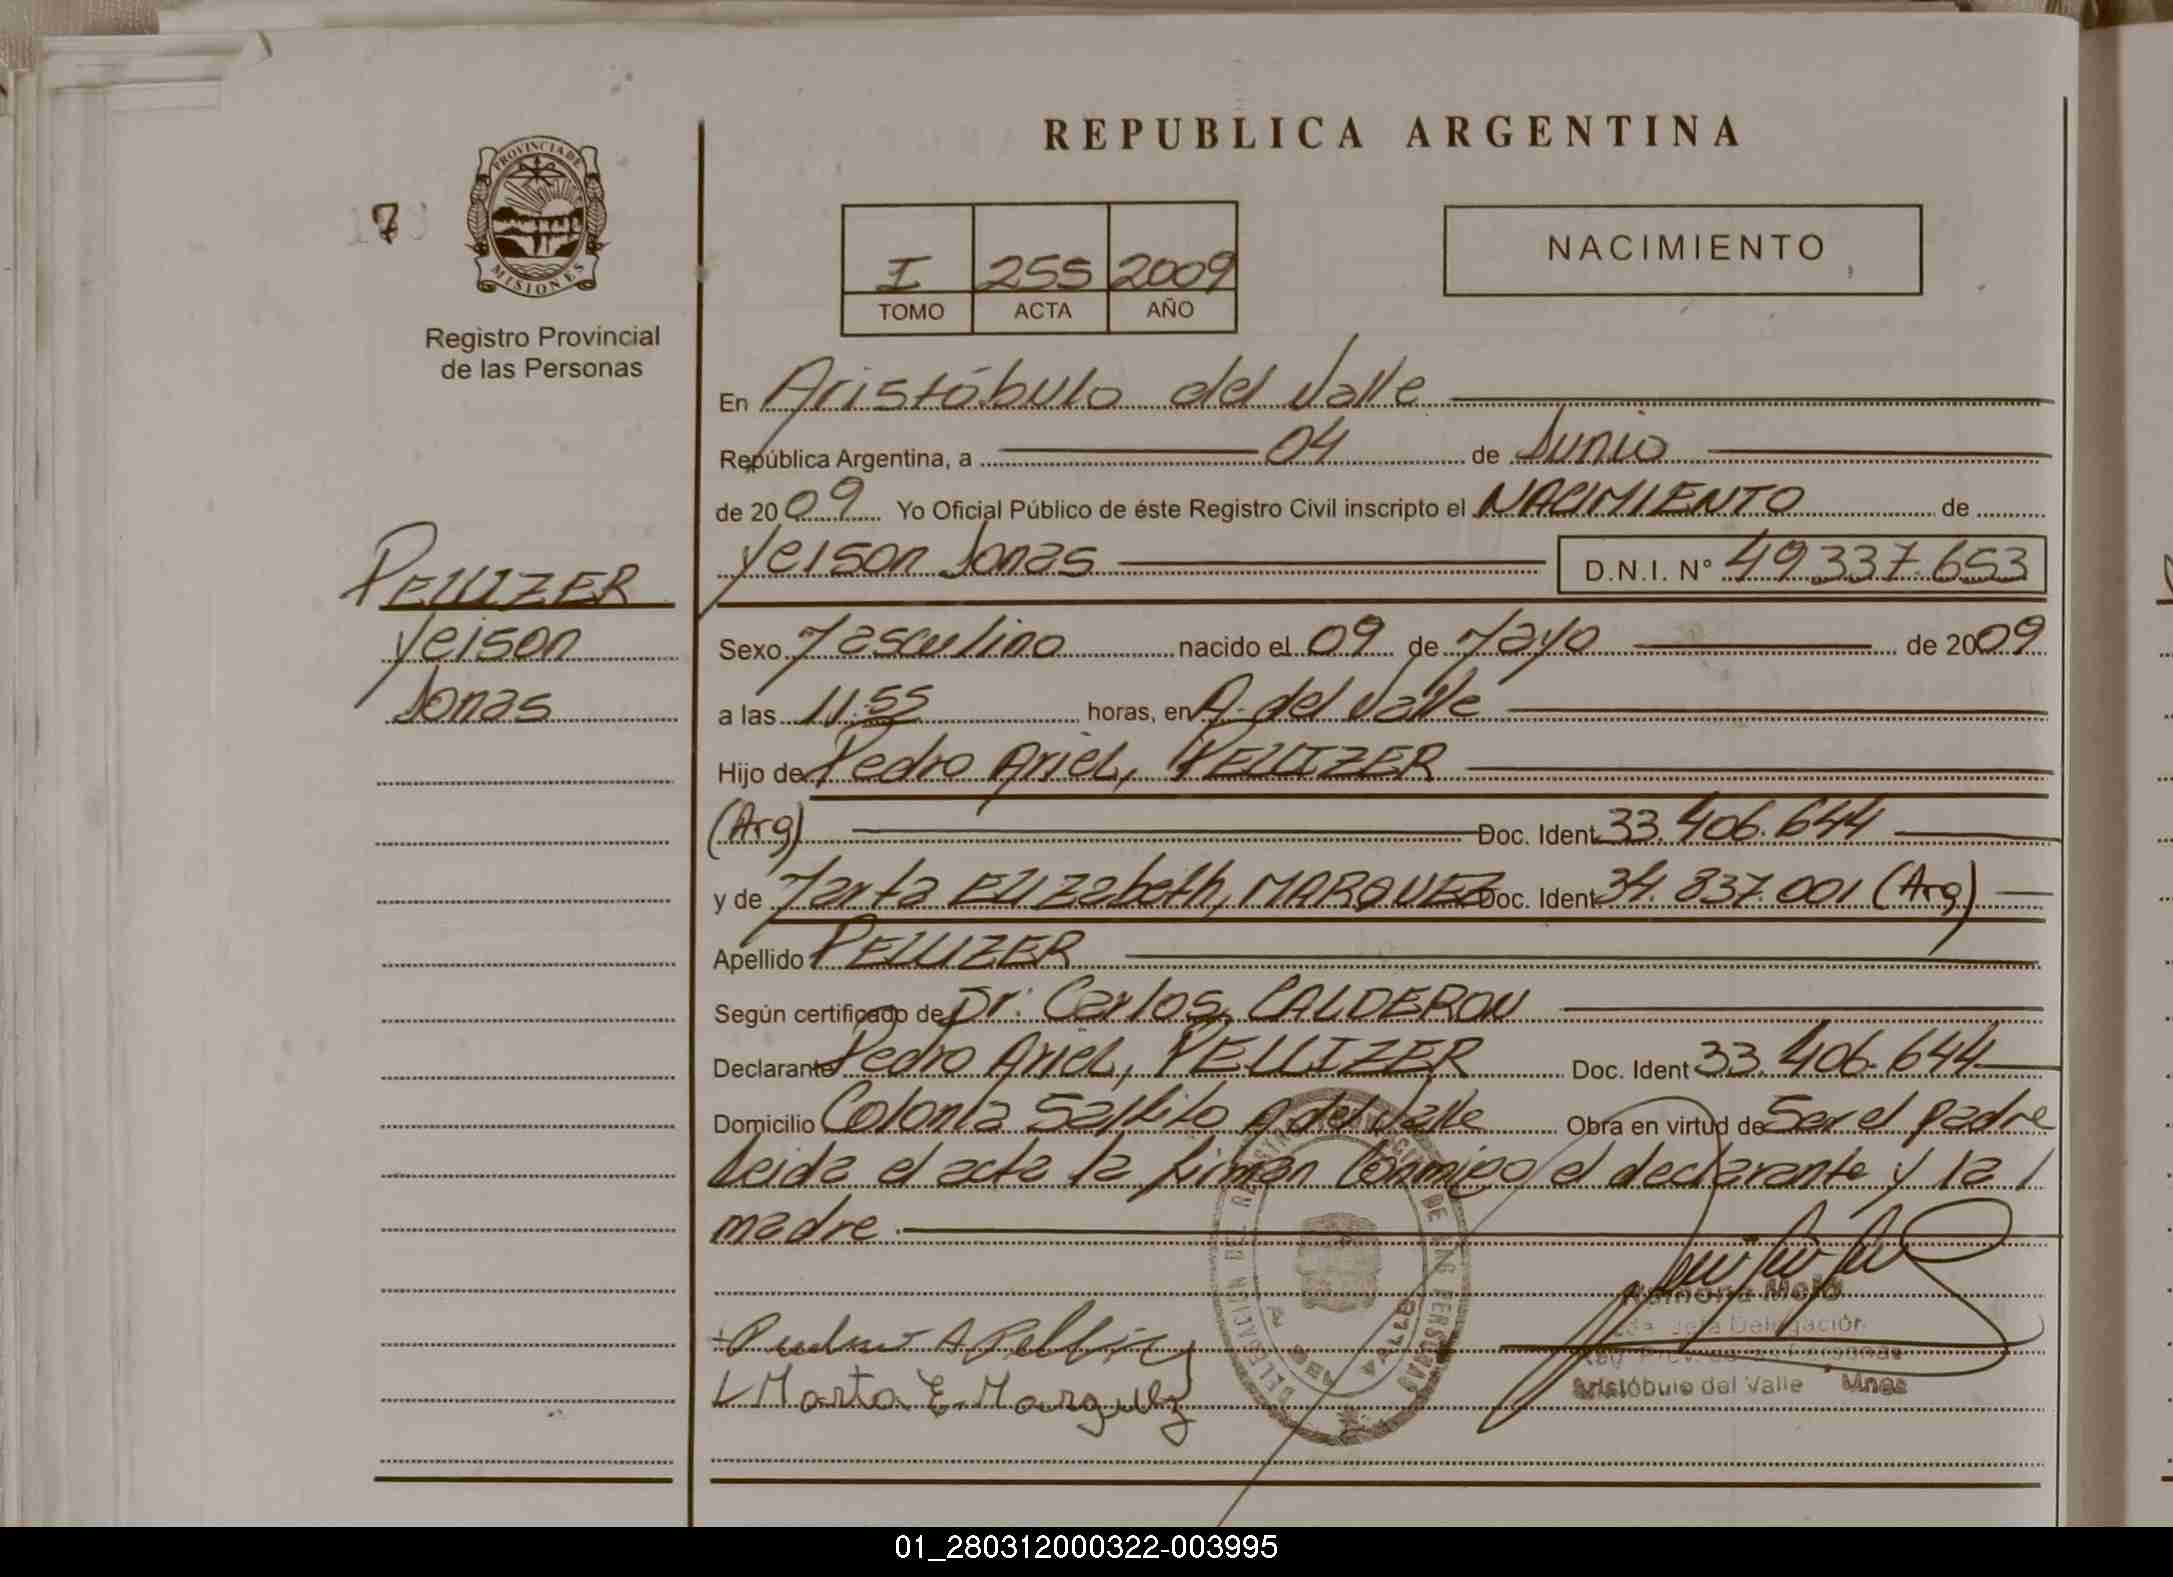 REPUBLICA ARGENTINA
PROVINCIA DE
MISIONES
7
Registro Provincial
de las Personas
I 255 2009
TOMO ACTA AÑO
NACIMIENTO
En Aristóbulo del Valle
República Argentina, a 04 de Junio
de 2009 Yo Oficial Público de éste Registro Civil inscripto el NACIMIENTO de
Yeison Jonas D.N.I. N° 49.337.653
PELLIZER
Yeison
Jonas
Sexo Masculino nacido el 09 de Mayo de 2009
a las 11:55 horas, en A. del Valle
Hijo de Pedro Ariel, PELLIZER
(Arg) Doc. Ident 33.406.644
y de Marta Elizabeth, MARQUEZ Doc. Ident 34.837.001 (Arg)
Apellido PELLIZER
Según certificado de Dr. Carlos CALDERON
Declarante Pedro Ariel, PELLIZER Doc. Ident 33.406.644
Domicilio Colonia Saltito A del Valle Obra en virtud de Ser el padre
Leida el acta la firman Conmigo el declarante y la
madre.
DELEGACION DEL REGISTRO PROVINCIAL DE LAS PERSONAS
A. DEL VALLE
Pedro A Pellizer
Marta E. Marquez
Ramona Melo
Jefa Delegación
Reg. Prov. de las Personas
Aristóbulo del Valle Mnes
01_280312000322-003995